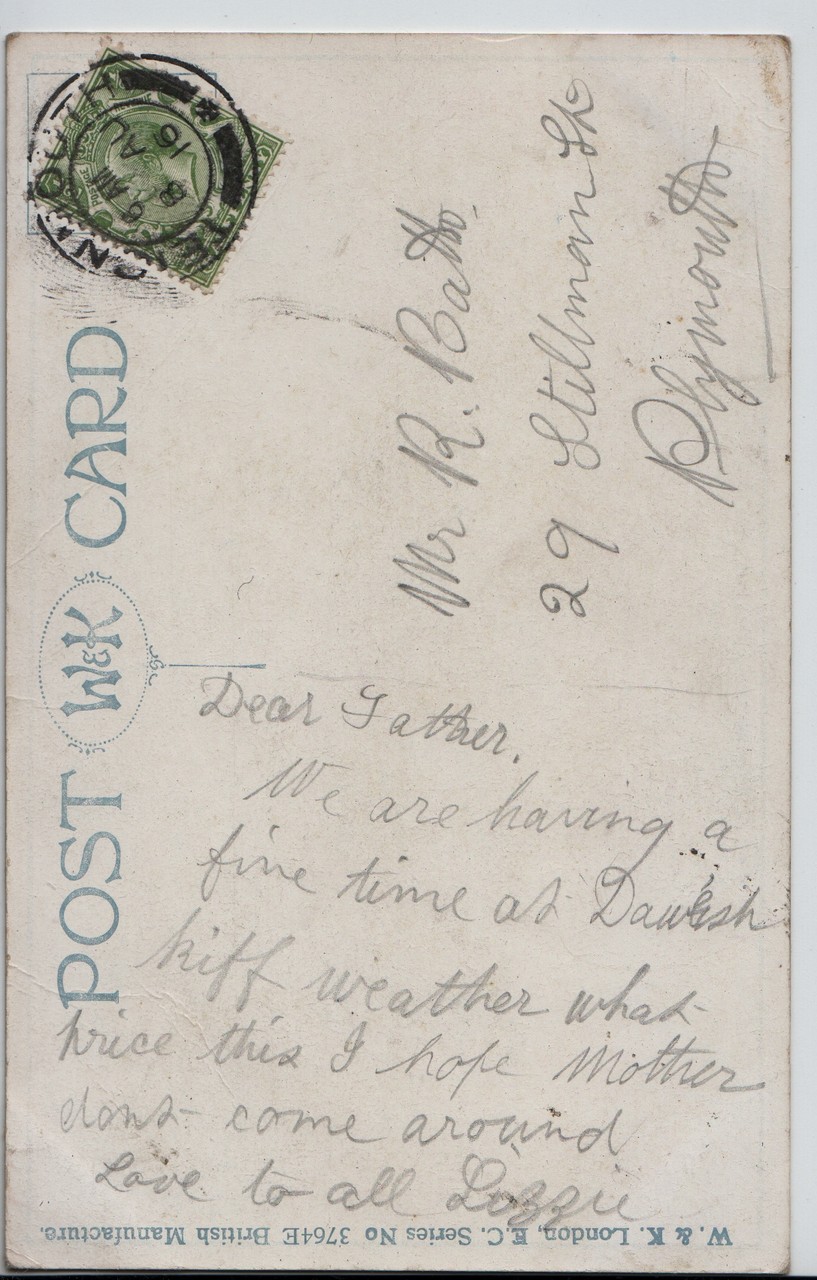 POST W&K CARD
Mr R. Batho.
29 Stillman St
Plymouth
Dear Father.
We are having a
fine time at Dawlish
kiff weather what
price this I hope Mother
dont come around
Love to all Lizzie
W. & K. London, E.C. Series No 3764E British Manufacture.